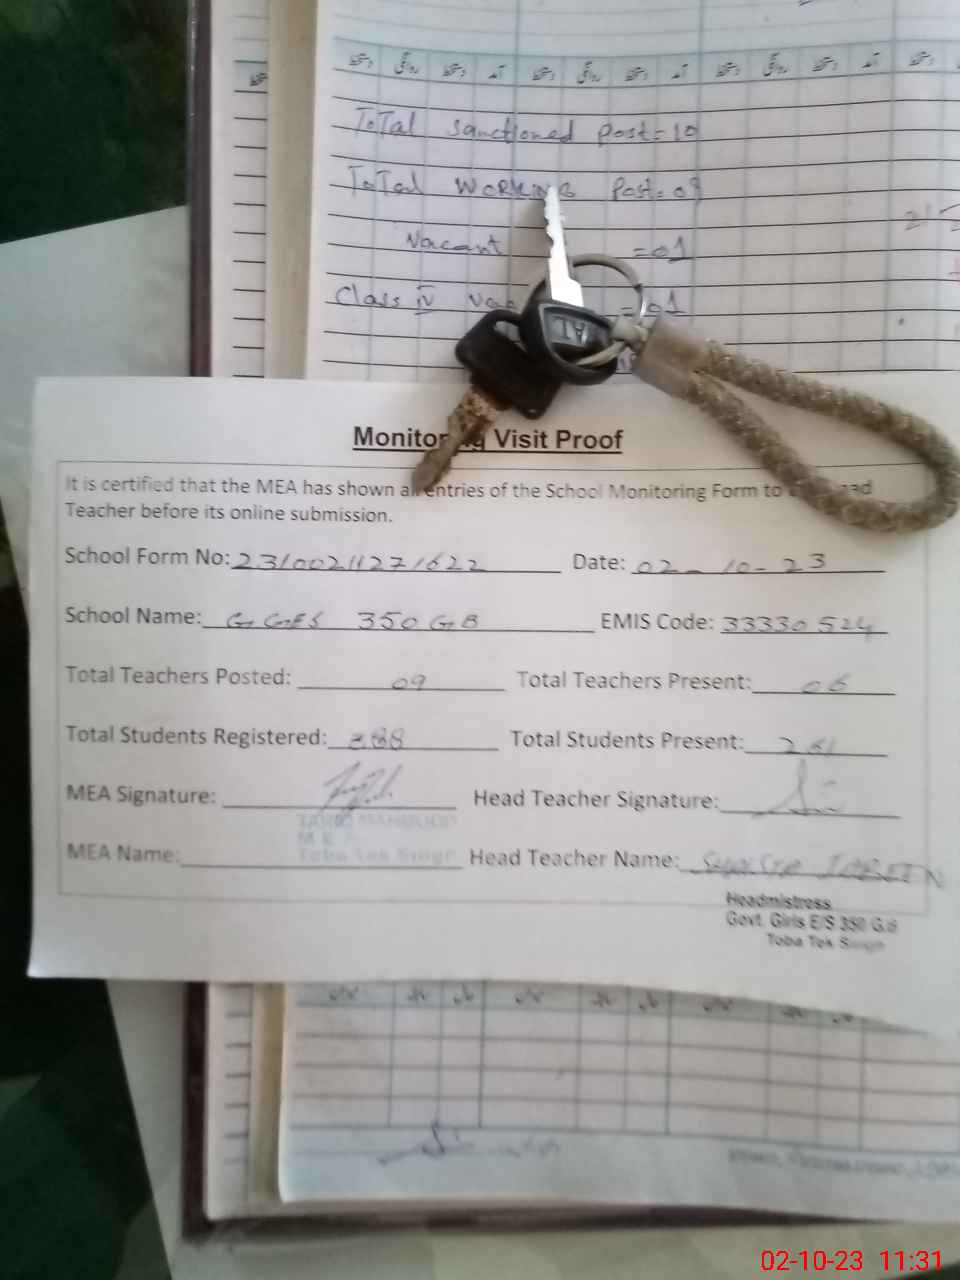 دستخط روانگی دستخط آمد دستخط روانگی دستخط آمد دستخط روانگی دستخط آمد دستخط
Total Sanctioned Post = 10
Total WORKING Post = 09
Vacant = 01
Class IV = 01
Monitoring Visit Proof
It is certified that the MEA has shown all entries of the School Monitoring Form to
Teacher before its online submission.
School Form No: 23100211271622 Date: 02-10-23
School Name: GGES 350 GB EMIS Code: 33330524
Total Teachers Posted: 09 Total Teachers Present: 06
Total Students Registered: 388 Total Students Present: 261
MEA Signature: Head Teacher Signature:
TARIQ MAHMOOD
M E A
MEA Name: Toba Tek Singh Head Teacher Name:
Headmistress
Govt. Girls E/S 350 G.B
Toba Tek Singh
02-10-23 11:31